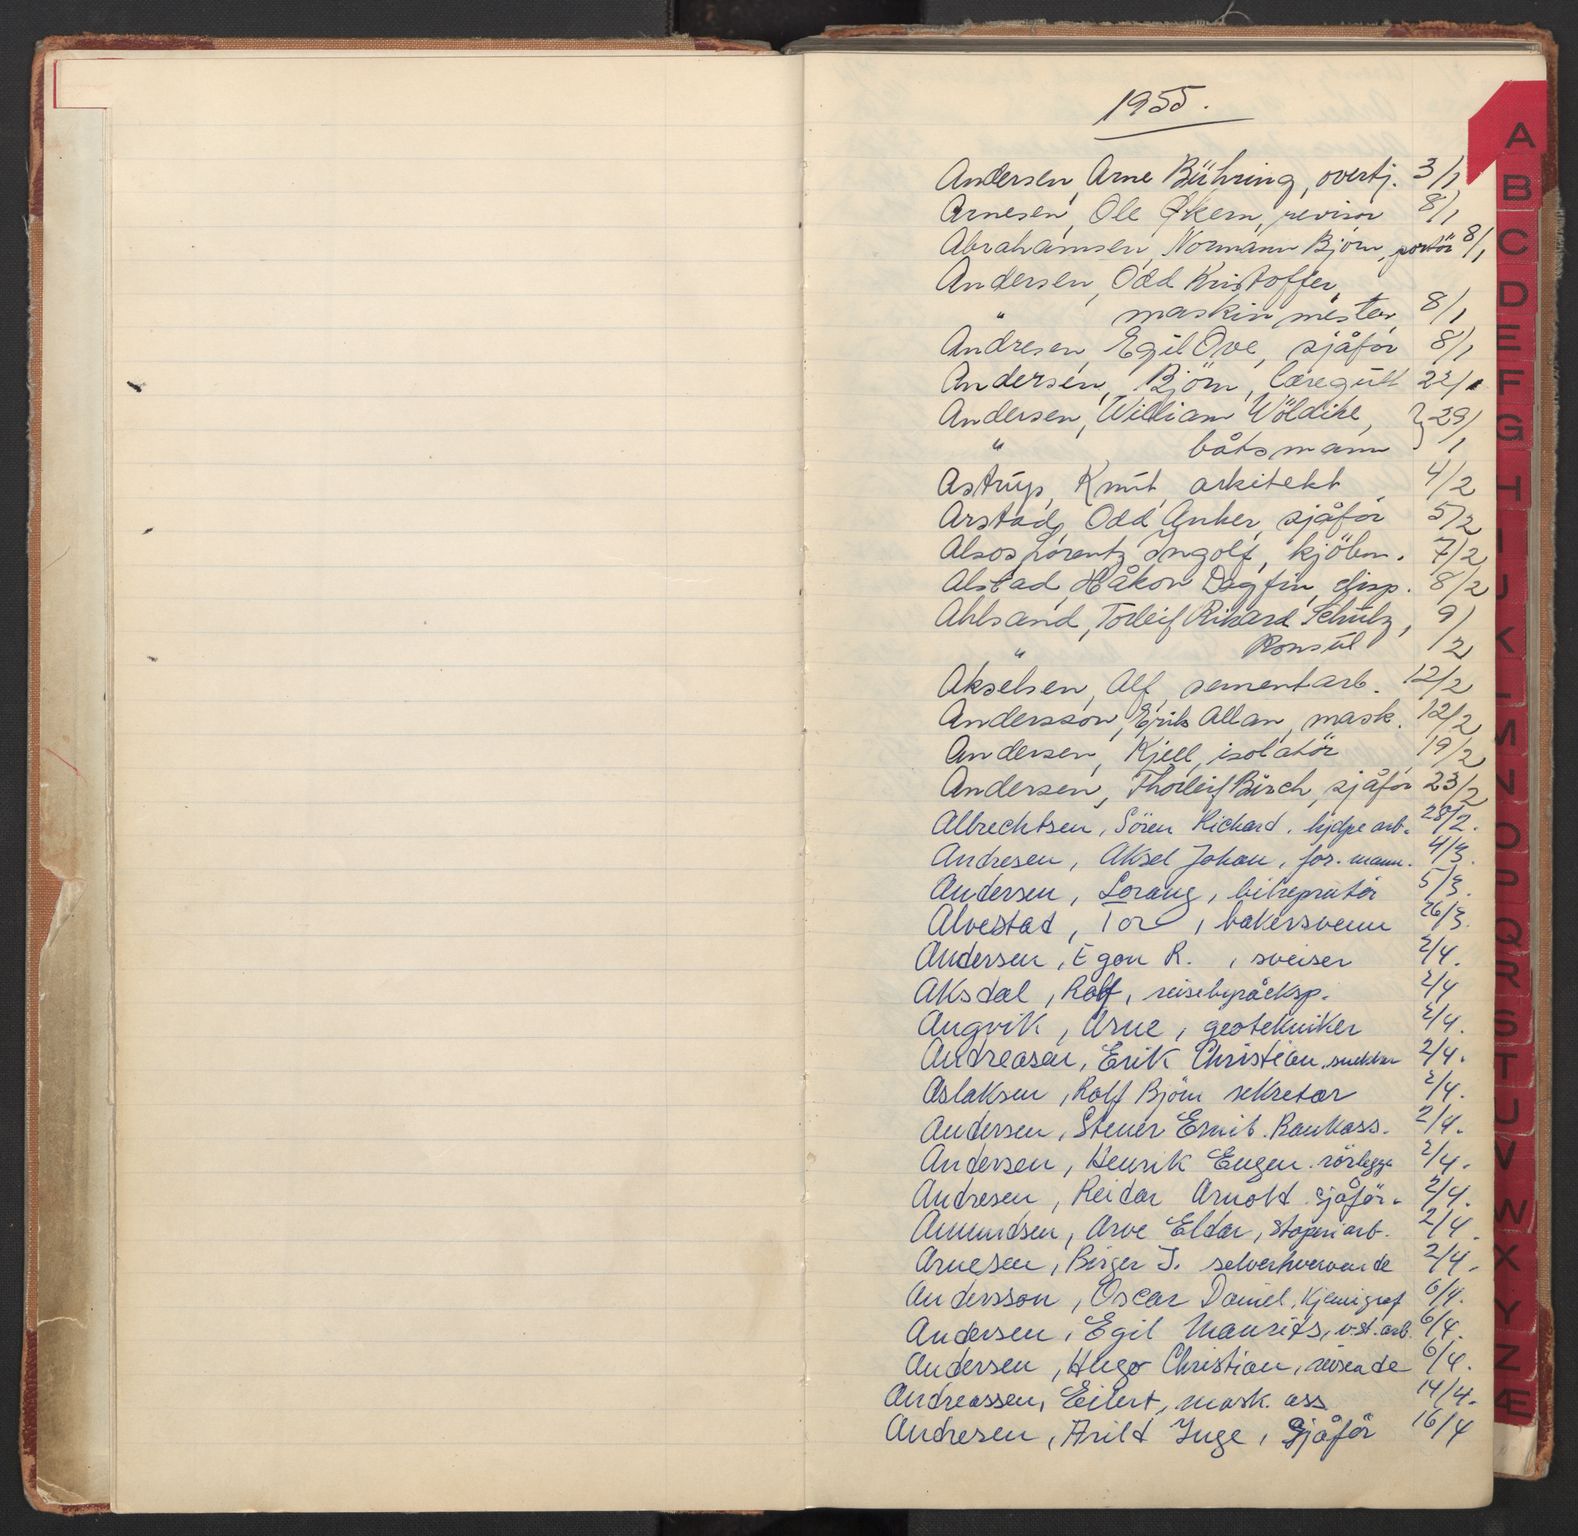 1955.
Andersen, Arne Bühring, overtj. 3/1
Arnesen, Ole Økern, revisor 8/1
Abrahamsen, Normann Bjørn, portör 8/1
Andersen, Odd Kristoffer,
" maskinmester 8/1
Andresen, Egil Ove, sjåför 8/1
Andersen, Björn, læregutt 22/1
Andersen, William Wöldike, } 29/1
" båtsmann
Astrup, Knut, arkitekt 4/2
Arstad, Odd Anker, sjåför 5/2
Alsos, Lorentz Ingolf, kjöbm. 7/2
Alstad, Håkon Dagfin, disp. 8/2
Ahlsand, Torleif Rikard Schulz, 9/2
" Konsul
Akselsen, Alf, sementarb. 12/2
Andersson, Erik Allan, mask. 12/2
Andersen, Kjell, isolatör 19/2
Andersen, Thorleif Birch, sjåför 23/2
Albrechtsen, Sören Richard, hjelpearb. 28/2.
Andresen, Aksel Johan, for.mann. 4/3.
Andersen, Lorang, bilreparatör 5/3.
Alvestad, Tor, bakersvenn 26/3.
Andersen, Egon R., sveiser 2/4.
Aksdal, Rolf, reisebyråeksp. 2/4
Angvik, Arne, geotekniker 2/4.
Andreasen, Erik Christian, snekker 2/4.
Aslaksen, Rolf Björn sekretær 2/4.
Andersen, Stener Emil. Bankass. 2/4.
Andersen, Henrik Eugen. rörlegger 2/4.
Andresen, Reidar Arnold. sjåför. 2/4.
Amundsen, Arve Eldar, støperiarb. 2/4.
Arnesen, Birger J. selverhvervende 2/4.
Andersson, Oscar Daniel, Kjemigraf 6/4.
Andersen, Egil Maurits, v.st.arb. 6/4.
Andersen, Hugo Christian, reisende 6/4.
Andreassen, Eilert, mask. ass 14/4.
Andresen, Arild Inge, sjåför 16/4
A
B
C
D
E
F
G
H
I
J
K
L
M
N
O
P
Q
R
S
T
U
V
W
X
Y
Z
Æ